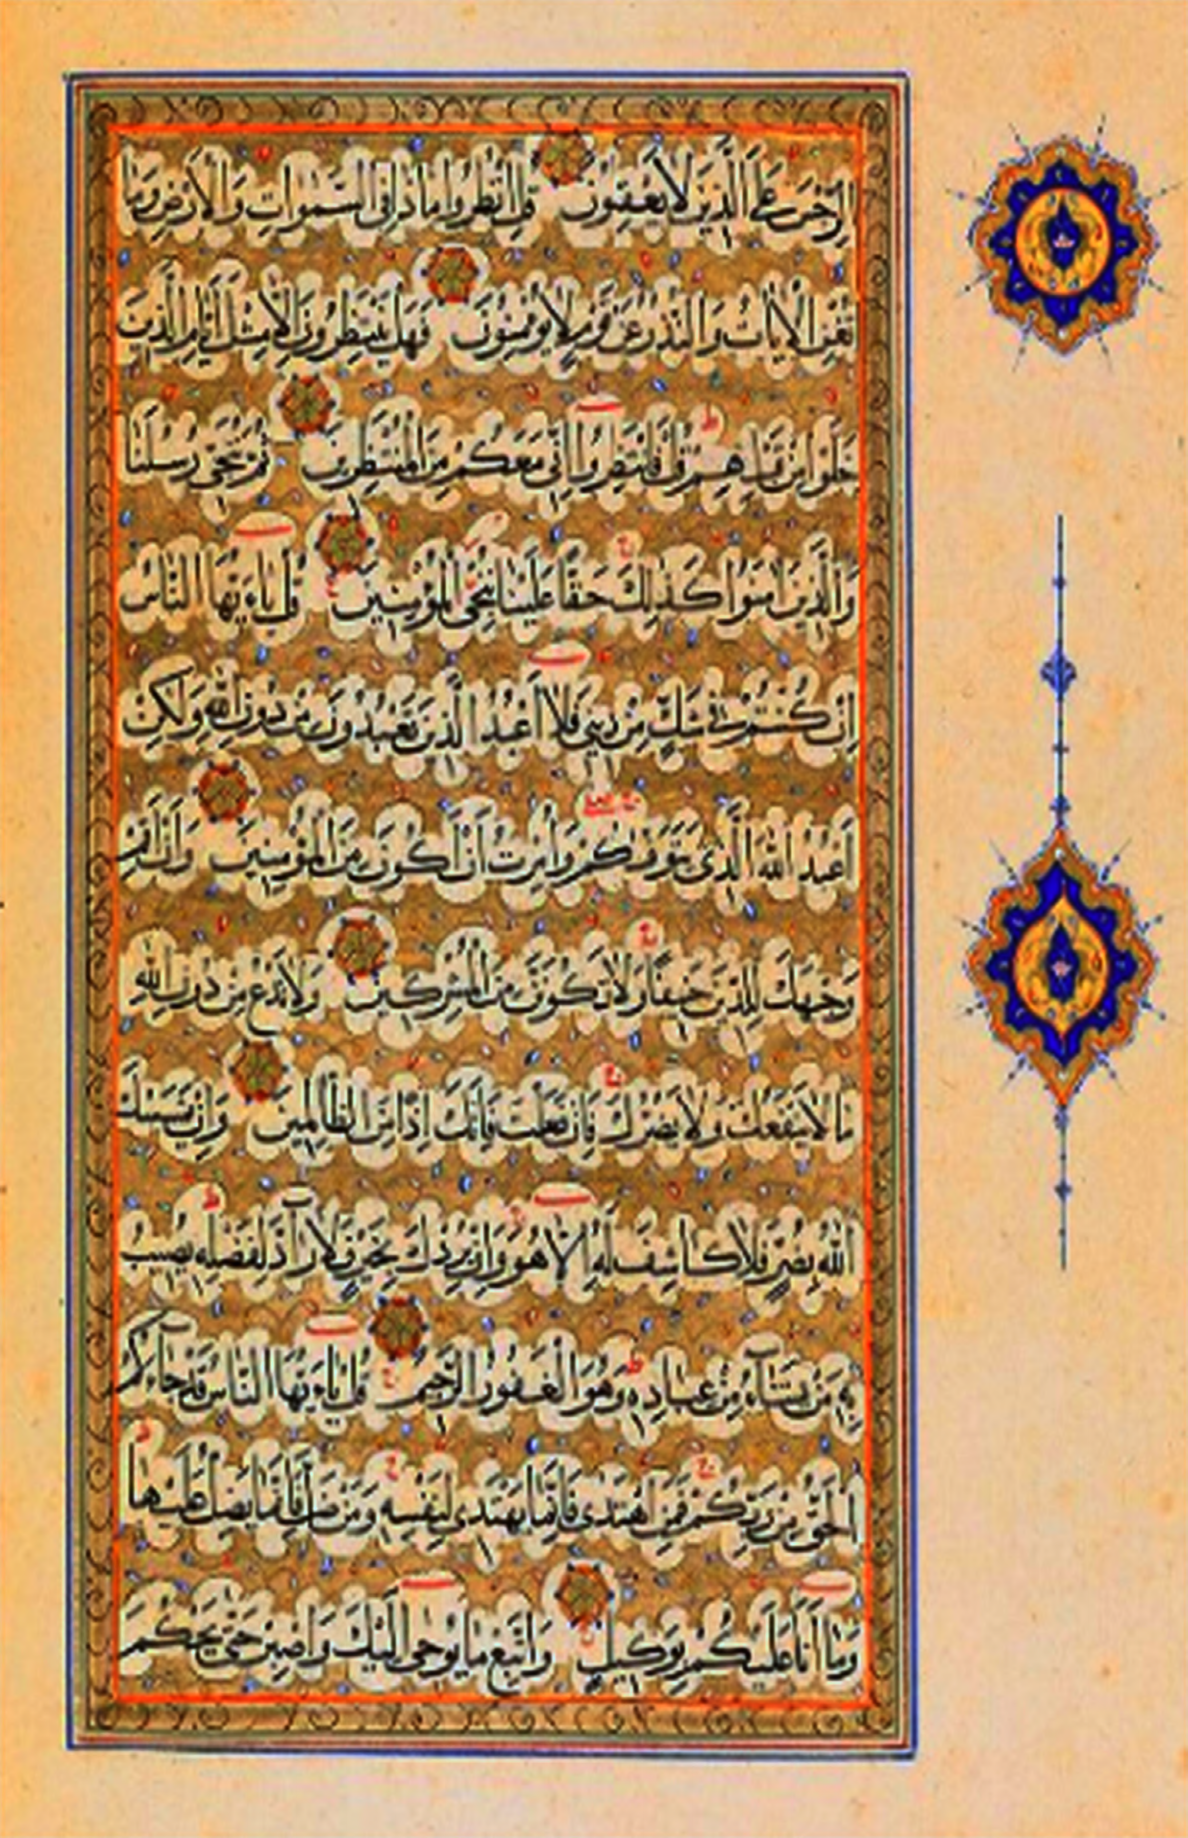 الرِّجْسَ عَلَى الَّذِينَ لَا يَعْقِلُونَ قُلِ انْظُرُوا مَاذَا فِي السَّمٰوَاتِ وَالْأَرْضِ وَمَا
تُغْنِي الْآيَاتُ وَالنُّذُرُ عَنْ قَوْمٍ لَا يُؤْمِنُونَ فَهَلْ يَنْتَظِرُونَ إِلَّا مِثْلَ أَيَّامِ الَّذِينَ
خَلَوْا مِنْ قَبْلِهِمْ قُلْ فَانْتَظِرُوا إِنِّي مَعَكُمْ مِنَ الْمُنْتَظِرِينَ ثُمَّ نُنَجِّي رُسُلَنَا
وَالَّذِينَ آمَنُوا كَذٰلِكَ حَقًّا عَلَيْنَا نُنْجِ الْمُؤْمِنِينَ قُلْ يَاءَيُّهَا النَّاسُ
إِنْ كُنْتُمْ فِي شَكٍّ مِنْ دِينِي فَلَا أَعْبُدُ الَّذِينَ تَعْبُدُونَ مِنْ دُونِ اللّٰهِ وَلٰكِنْ
أَعْبُدُ اللّٰهَ الَّذِي يَتَوَفّٰكُمْ وَأُمِرْتُ أَنْ أَكُونَ مِنَ الْمُؤْمِنِينَ وَأَنْ أَقِمْ
وَجْهَكَ لِلدِّينِ حَنِيفًا وَلَا تَكُونَنَّ مِنَ الْمُشْرِكِينَ وَلَا تَدْعُ مِنْ دُونِ اللّٰهِ
مَا لَا يَنْفَعُكَ وَلَا يَضُرُّكَ فَإِنْ فَعَلْتَ فَإِنَّكَ إِذًا مِنَ الظَّالِمِينَ وَإِنْ يَمْسَسْكَ
اللّٰهُ بِضُرٍّ فَلَا كَاشِفَ لَهُ إِلَّا هُوَ وَإِنْ يُرِدْكَ بِخَيْرٍ فَلَا رَآدَّ لِفَضْلِهِ يُصِيبُ
بِهِ مَنْ يَشَآءُ مِنْ عِبَادِهِ وَهُوَ الْغَفُورُ الرَّحِيمُ قُلْ يَاءَيُّهَا النَّاسُ قَدْ جَآءَكُمُ
الْحَقُّ مِنْ رَبِّكُمْ فَمَنِ اهْتَدٰى فَإِنَّمَا يَهْتَدِي لِنَفْسِهِ وَمَنْ ضَلَّ فَإِنَّمَا يَضِلُّ عَلَيْهَا
وَمَا أَنَا عَلَيْكُمْ بِوَكِيلٍ وَاتَّبِعْ مَا يُوحٰى إِلَيْكَ وَاصْبِرْ حَتّٰى يَحْكُمَ